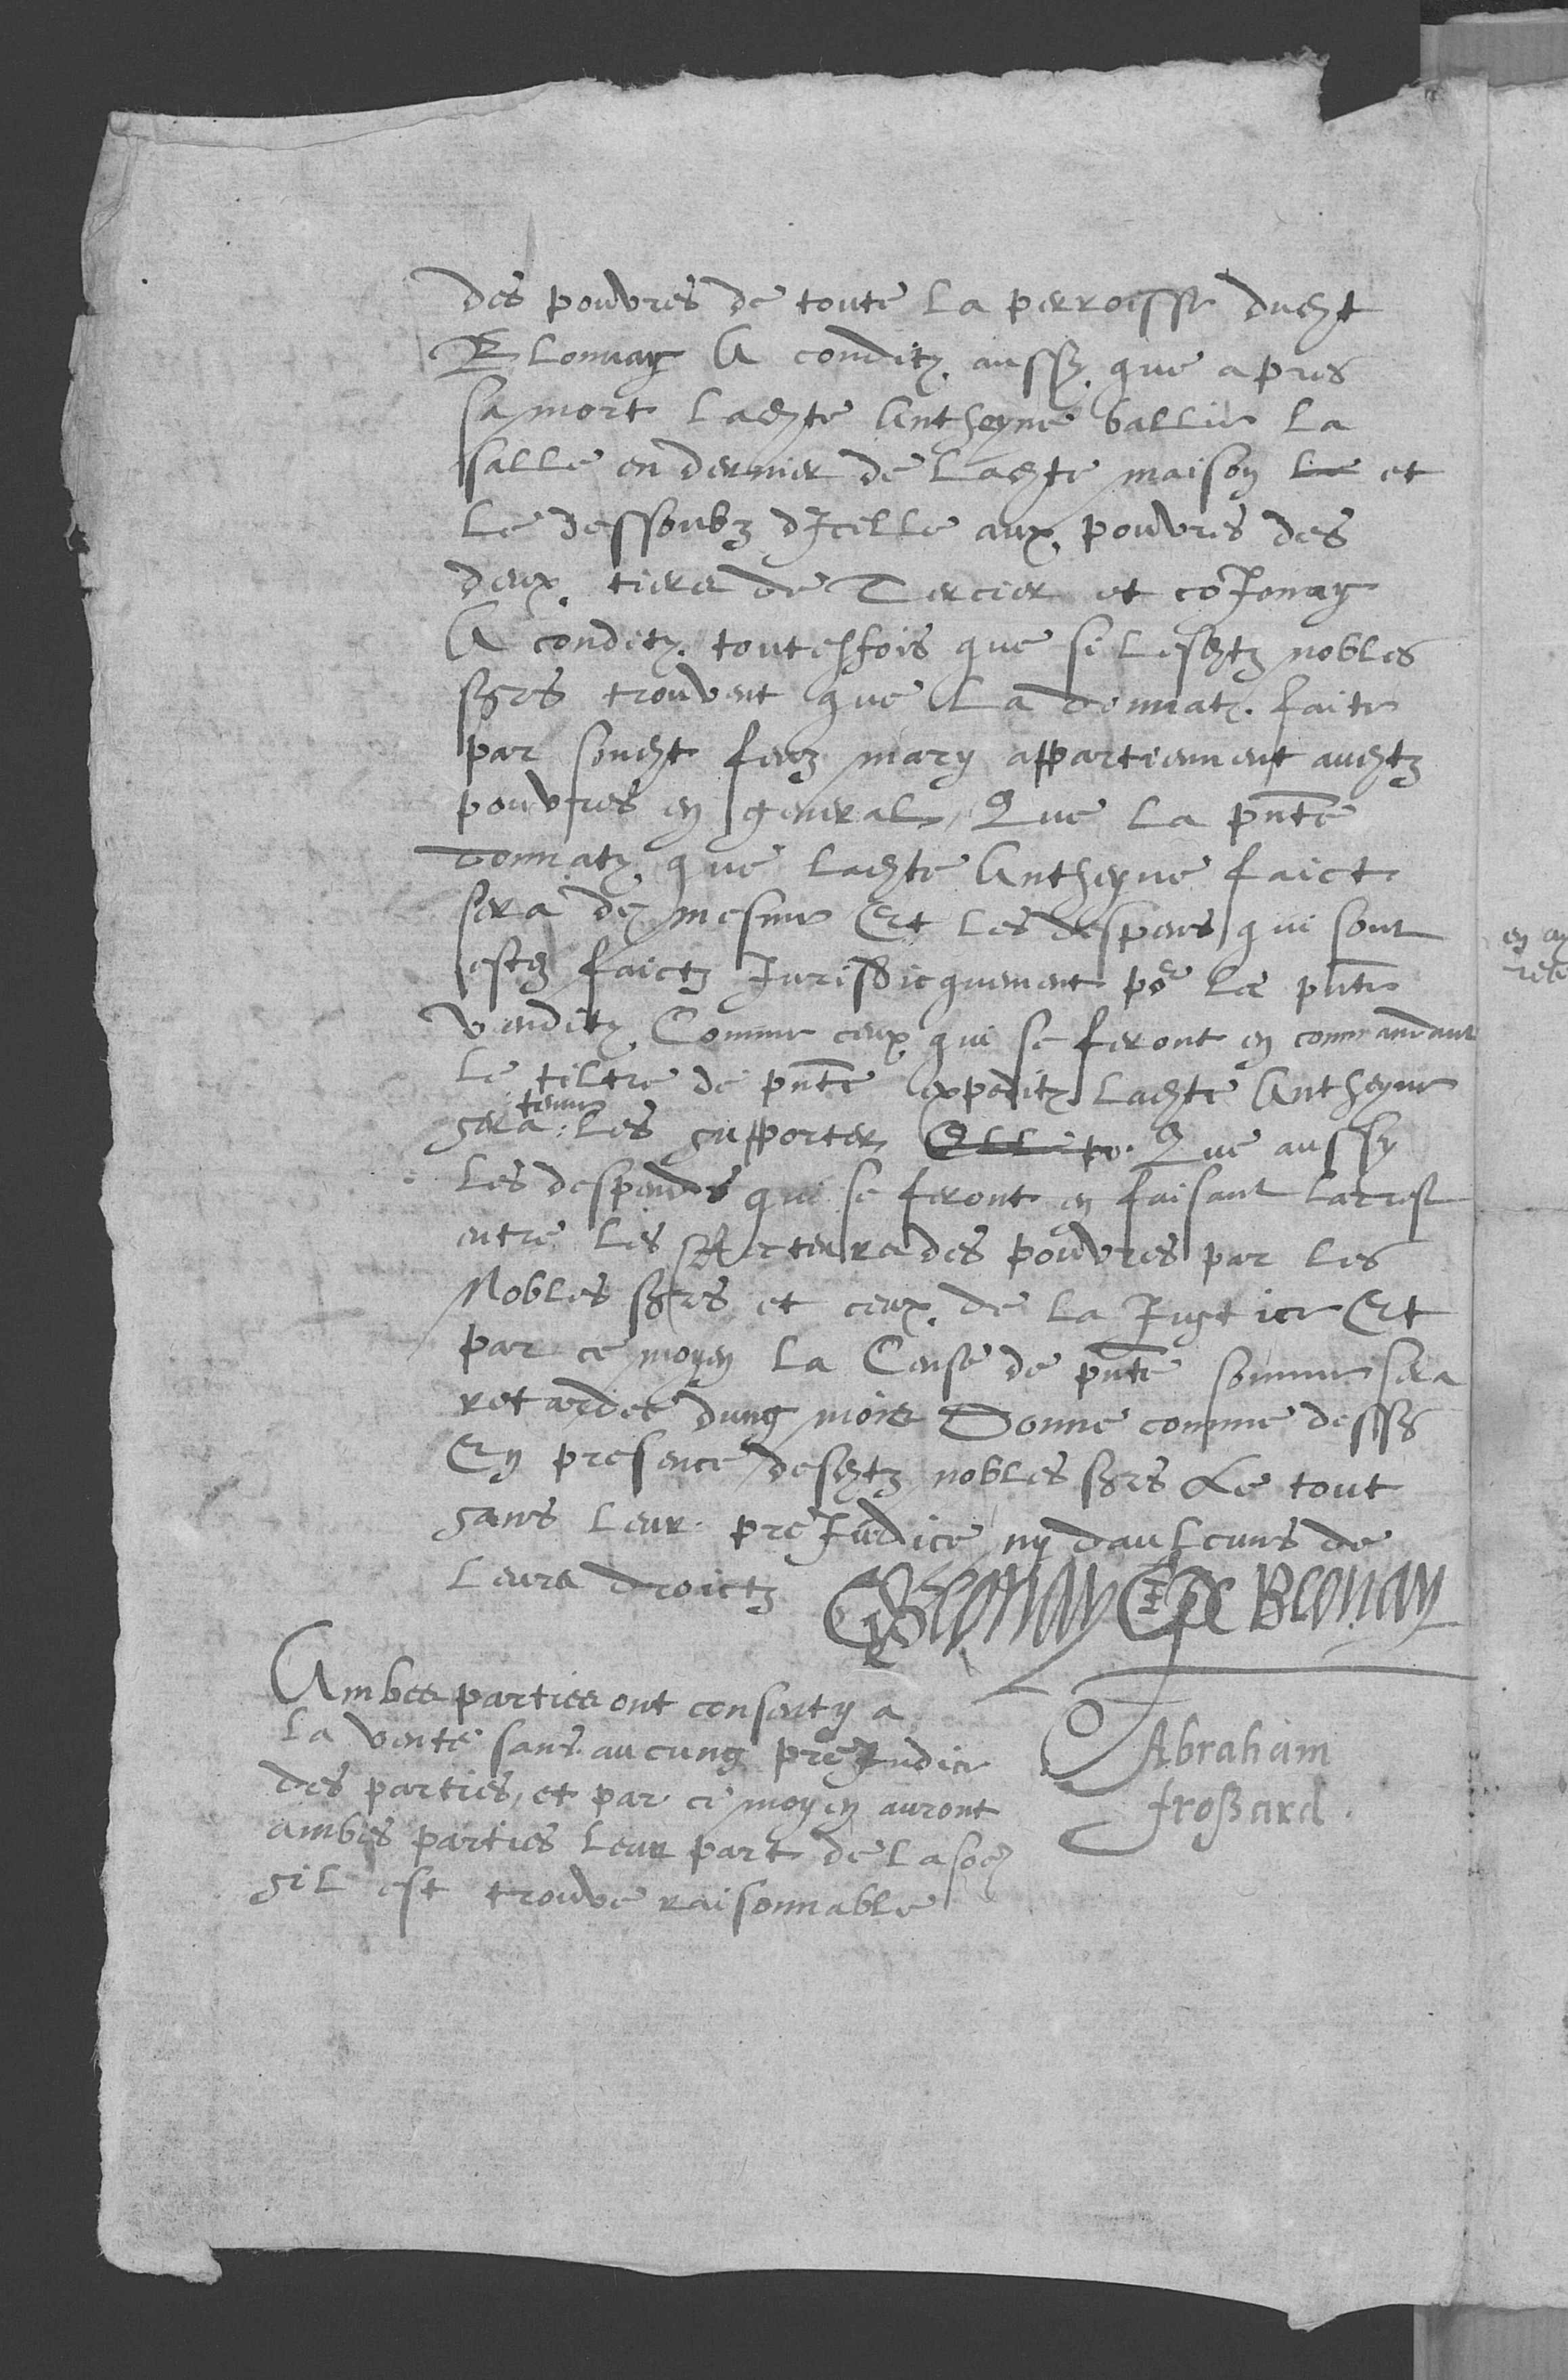 des pouvres de toute la perroesse dudt
Blonnay A condit. aussy que apres
sa mort ladte Antheyne ballie la
salle en dernier de ladte maison le et
le dessoubz dIcelle aux pouvres des
deux tiers de Tercier et coJonay
A condit. toutesfois que si lesdtz nobles
sgrs trouvent que la donnat. faite
par sondt feuz mary appartiennent audtz
pouvres en general, Que la pnte
donnat. que ladte Antheyne faict
sera de mesme Et les despens qui sont
estez faictz Juridicquement por la pnte
vendit. Comme ceux qui se feront en commandant
le tiltre de pnte expedit. ladte Antheyne
tenue
sera les supporter Que aussy
les despends qui se feront en faisant larrest
entre les secteurs des pouvres par les
Nobles sgrs et ceux de la Justice Et
par ce moyen la Cense de pnte somme sera
retardee dung mois Donne comme dessus
En presence desdtz nobles sgrs Le tout
sans leur preJudice ny daulcuns de
leurs droictz
GBlonay De Blonay
Ambes parties ont consenty a
la vente sans aucung preJudice
des parties, et par ce moyen auront
ambes parties leur part de la soe
sil est trouve raisonnable
Abraham
froßard.
en